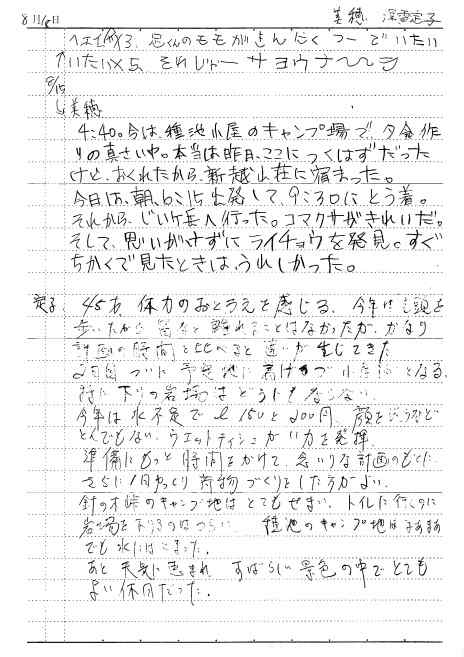 8月16日
美穂 深雪 定子
ももがきんにくつーでいたい
いたい×5、それじゃーサヨウナ〜〜ラ
8/15
美穂
4:40。今は、種池小屋のキャンプ場で、夕食作
りの真さい中。本当は昨日、ここにつくはずだった
けど、おくれたから、新越山荘に宿まった。
今日は、朝、6:15出発して、9:30にとう着。
それから、じいヶ岳へ行った。コマクサがきれいだ。
そして、思いがけずにライチョウを発見。すぐ
ちかくで見たときは、うれしかった。
定子 45才、体力のおとろえを感じる、今年は先頭を
歩いたから 離れることはなかったが、かなり
計画の時間と比べると違いが生じてきた
2日目 ついに予定地に着けず小屋泊となる。
特に下りの岩場はどうにもならない。
今年は水不足で ℓ150と200円、顔を洗うなど
とんでもない、ウエットティシュがい力を発揮
準備にもっと時間をかけて、念いりな計画のもとに
さらに1日ゆっくり荷物づくりをした方がよい。
針の木峠のキャンプ地はとてもせまい、トイレに行くのに
岩場を下りるのはつらい 種池のキャンプ地はまあまあ
でも水にはこまった。
あと天気に恵まれ すばらしい景色の中でとても
よい休日だった.